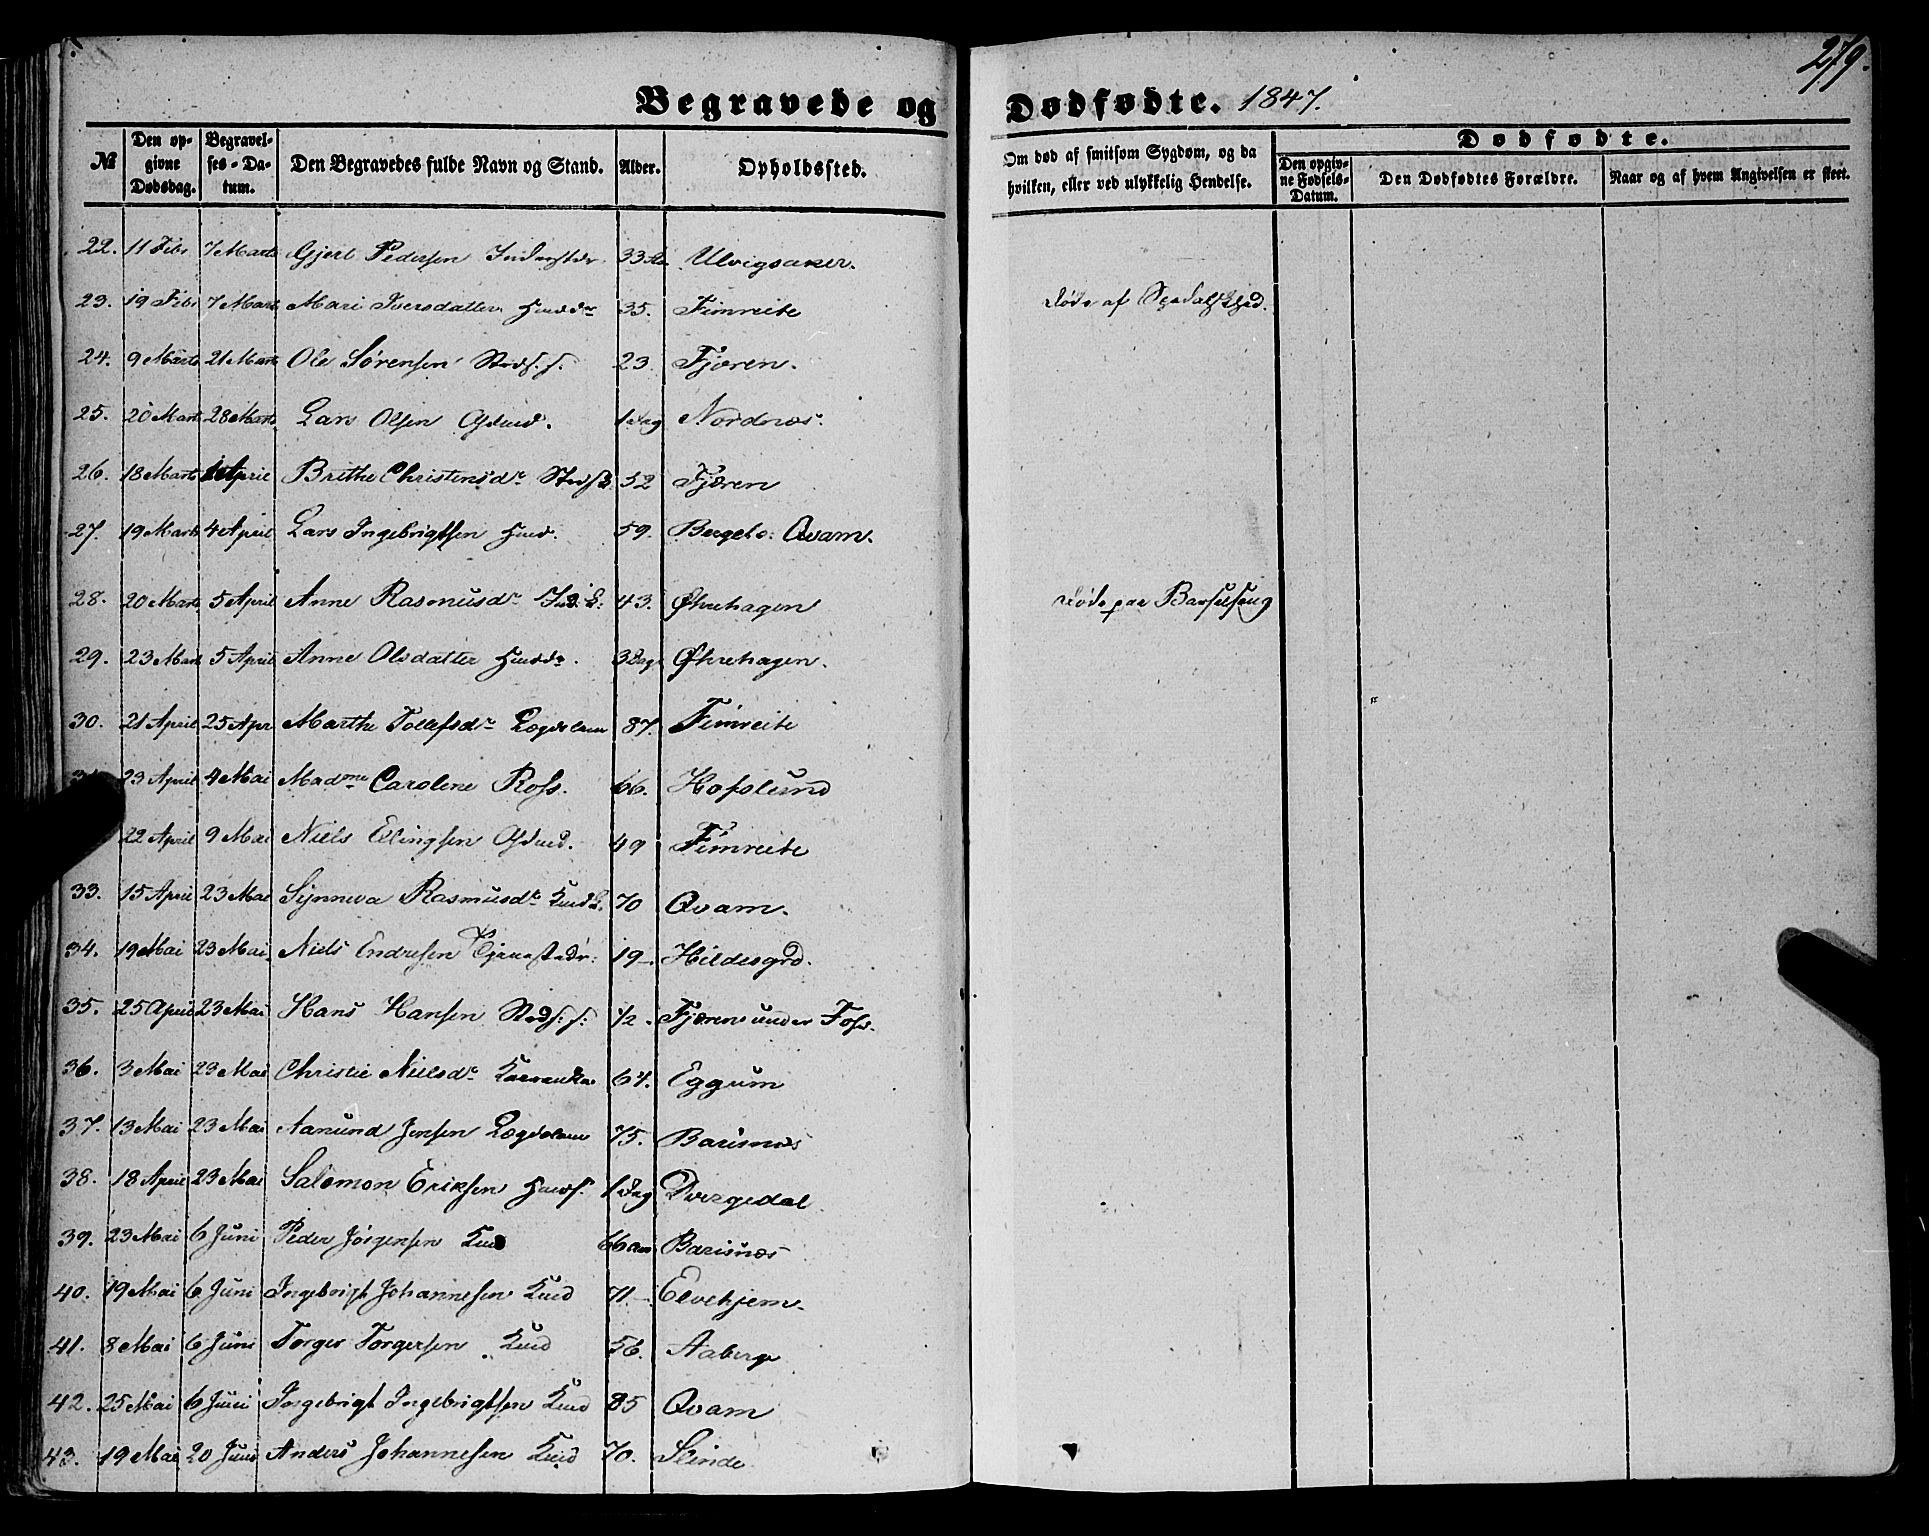 279.
Begravede og Dødfødte. 1847.
№ Den opgivne Dødsdag. Begravelses-Datum. Den Begravedes fulde Navn og Stand. Alder. Opholdssted. Om død af smitsom Sygdom, og da hvilken, eller ved ulykkelig Hendelse. Dødfødte. Den opgivne Fødsels-Datum. Den Dødfødtes Forældre. Naar og af hvem Angivelsen er skeet.
22. 11 Febr 7 Marts Gjert Pedersen 33 Ulvigsaker.
23. 19 Febr 7 Marts Mari Iversdatter 35. Fimreite døde af Spedalskhed.
24. 9 Marts 21 Marts Ole Sørensen 23 Fjæren.
25. 20 Marts 28 Marts Lars Olsen 1 Dag Nordnæs.
26. 18 Marts April Brithe Christensdr 52 Fjæren
27. 19 Marts 4 April Lars Ingebrigtsen 59. Qvam.
28. 20 Marts 5 April Anne Rasmusdr 43. Øhrehagen døde paa Barselseng
29. 23 Marts 5 April Anne Olsdatter 3 Dage Øhrehagen.
30. 21 April 25 Apr Marthe Tollefsdr Lægdslem 87. Fimreite
23 April 4 Mai Madme Carolene Ross. 66. Hofslund
22 April 9 Mai Niels Ellingsen 49 Fimreite
33. 15 April 23 Mai Synneva Rasmusdr 70 Qvam.
34. 19 Mai 23 Mai Niels Endresen 19 Hildesgrd.
35. 25 April 23 Mai Hans Hansen 1/2 Fjæren under Foss.
36. 3 Mai 23 Mai Christie Nielsdr Kaarenke 64. Eggum
37. 13 Mai 23 Mai Aamund Jensen Lægdslem 75. Barisnæs
38. 18 April 23 Mai Salomon Eriksen 1 Dag Dvergedal
39. 23 Mai 6 Juni Peder Jørgensen 66 Barisnæs
40. 19 Mai 6 Juni Ingebrigt Johannesen 71 Elvehjem.
41. 8 Mai 6 Juni Torger Torgersen 56. Aaberge
42. 25 Mai 6 Juni Ingebrigt Ingebrigtsen 85 Qvam
43. 19 Mai 20 Juni Anders Johannesen 70. Slinde